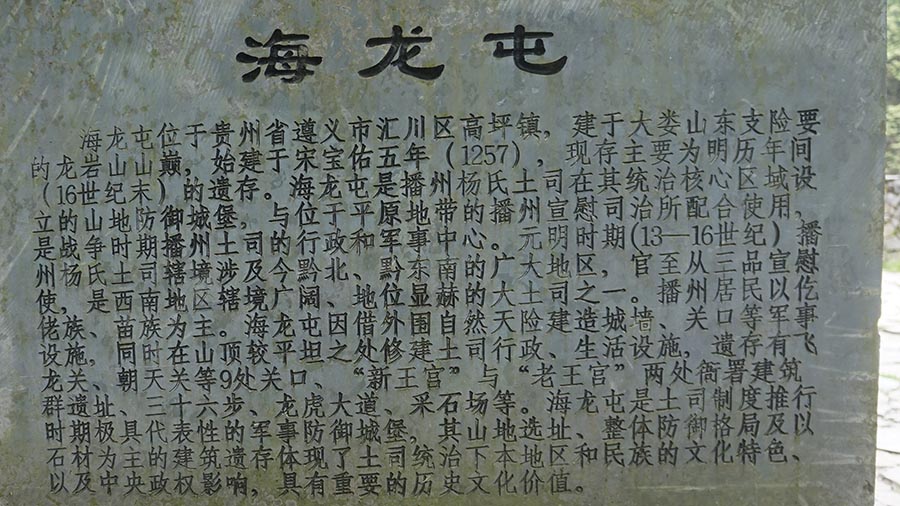 海龙屯
海龙屯位于贵州省遵义市汇川区高坪镇，建于大娄山东支险要
的龙岩山山巅，始建于宋宝佑五年（1257），现存主要为明历年间
（16世纪末）的遗存。海龙屯是播州杨氏土司在其统治核心区域设
立的山地防御城堡，与位于平原地带的播州宣慰司治所配合使用，
是战争时期播州土司的行政和军事中心。元明时期(13—16世纪)播
州杨氏土司辖境涉及今黔北、黔东南的广大地区，官至从三品宣慰
使，是西南地区辖境广阔、地位显赫的大土司之一。播州居民以仡
佬族、苗族为主。海龙屯因借外围自然天险建造城墙、关口等军事
设施，同时在山顶较平坦之处修建土司行政、生活设施，遗存有飞
龙关、朝天关等9处关口、“新王宫”与“老王宫”两处衙署建筑
群遗址、三十六步、龙虎大道、采石场等。海龙屯是土司制度推行
时期极具代表性的军事防御城堡，其山地选址、整体防御格局及以
石材为主的建筑遗存体现了土司统治下本地区和民族的文化特色、
以及中央政权影响，具有重要的历史文化价值。